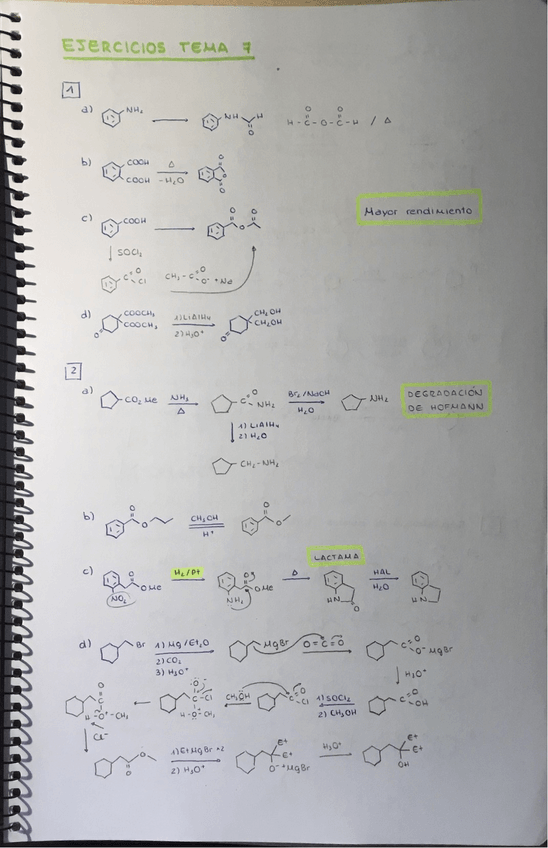 EJERCICIOS TEMA 7
1
a) NH2 NH H O H-C-O-C-H / Δ O O
b) COOH COOH Δ -H2O O O O
Mayor rendimiento
c) COOH O O O
SOCl2
C O Cl CH3-C O O- +Na
d) COOCH3 COOCH3 O 1) LiAlH4 2) H3O+ CH2OH CH2OH O
2
a) CO2Me NH3 Δ C O NH2 Br2/NaOH H2O NH2
DEGRADACIÓN
DE HOFMANN
1) LiAlH4
2) H2O
CH2-NH2
b) O O CH3OH H+ O O
LACTAMA
c) O OMe NO2 H2/Pt O OMe NH2 Δ HN O HAL H2O HN
d) Br 1) Mg/Et2O 2) CO2 3) H3O+ MgBr O=C=O C O O- MgBr
H3O+
C O OH 1) SOCl2 2) CH3OH C O Cl CH3OH O- C-Cl H-O+-CH3 O C H-O+-CH3
Cl-
O O 1) EtMgBr x2 2) H3O+ Et Et O- +MgBr H3O+ Et Et OH